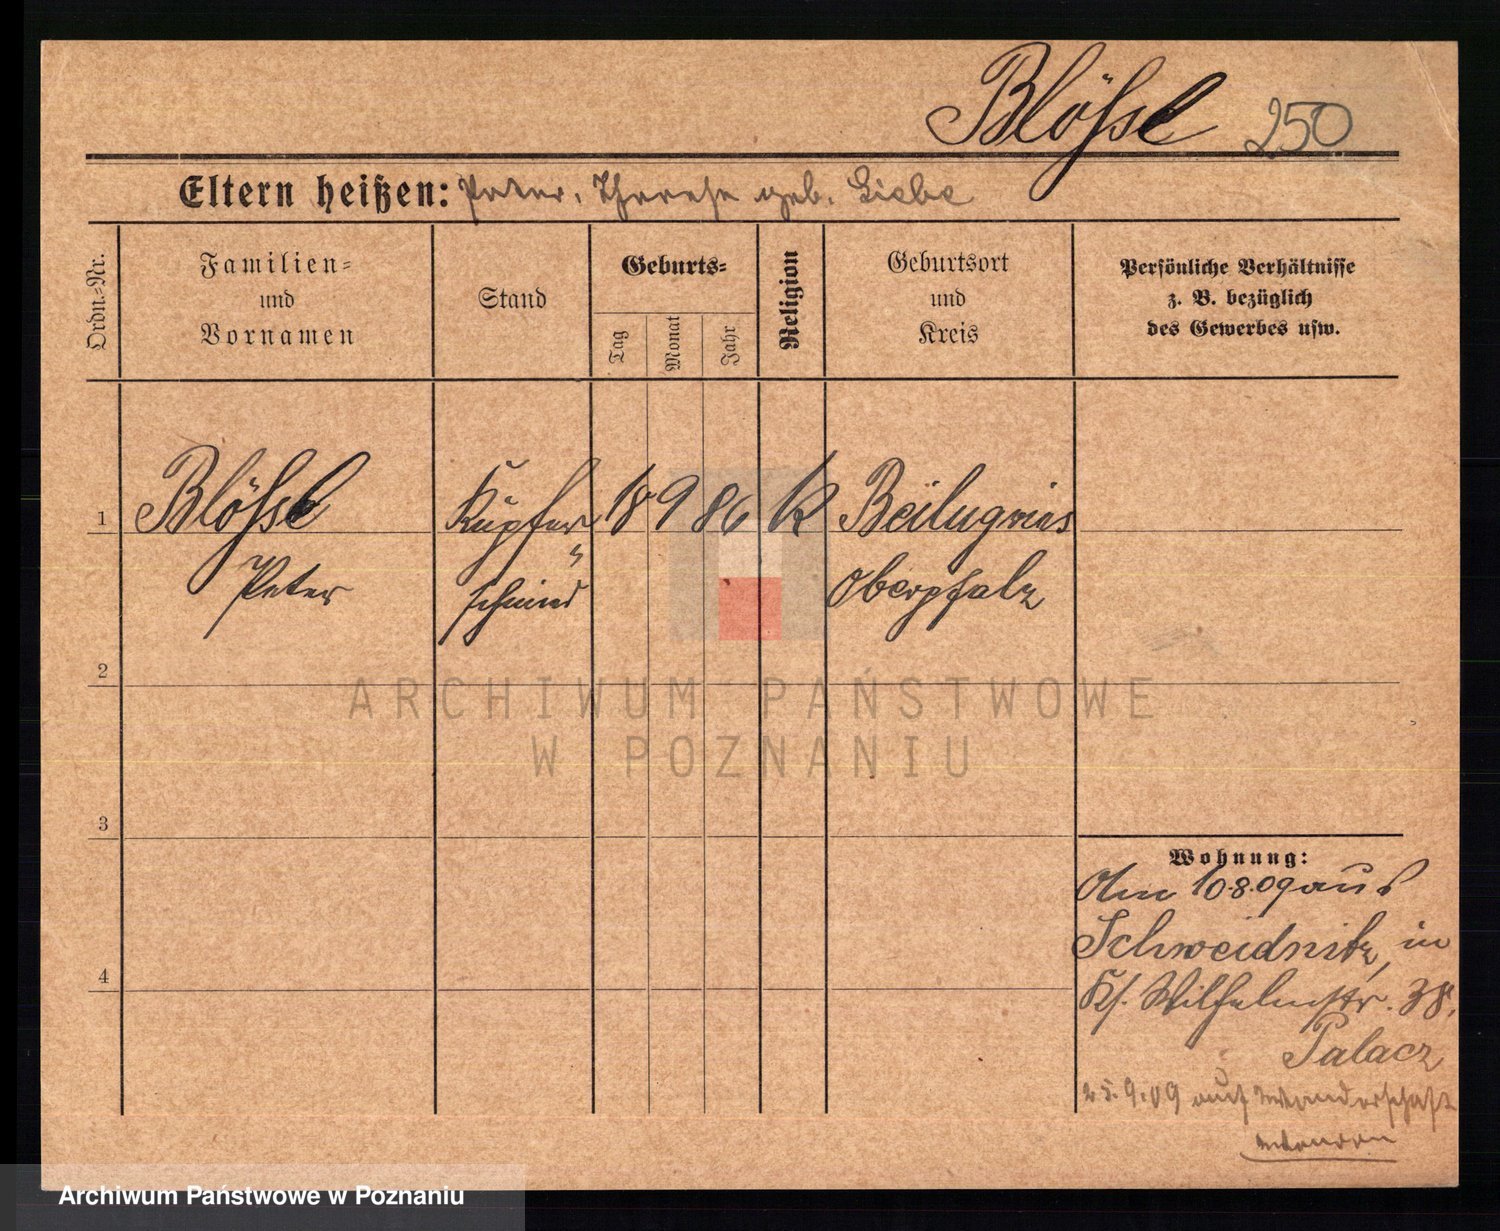 Blößl 250
Eltern heißen: Peter, Therese geb. Liebe
Ordn.-Nr.
Familien-
und
Vornamen
Stand
Geburts-
Tag
Monat
Jahr
Religion
Geburtsort
und
Kreis
Persönliche Verhältnisse
z. B. bezüglich
des Gewerbes usw.
1 Blößl Kupfer 18 9 86 K Beilugries
Peter schmied Oberpfalz
2
3
4
Wohnung:
Am 10.8.09 aus
Schweidnitz, in
Wilhelmstr. 38.
Palacz
25.9.09 auf Wanderschaft
ARCHIWUM PAŃSTWOWE
W POZNANIU
Archiwum Państwowe w Poznaniu